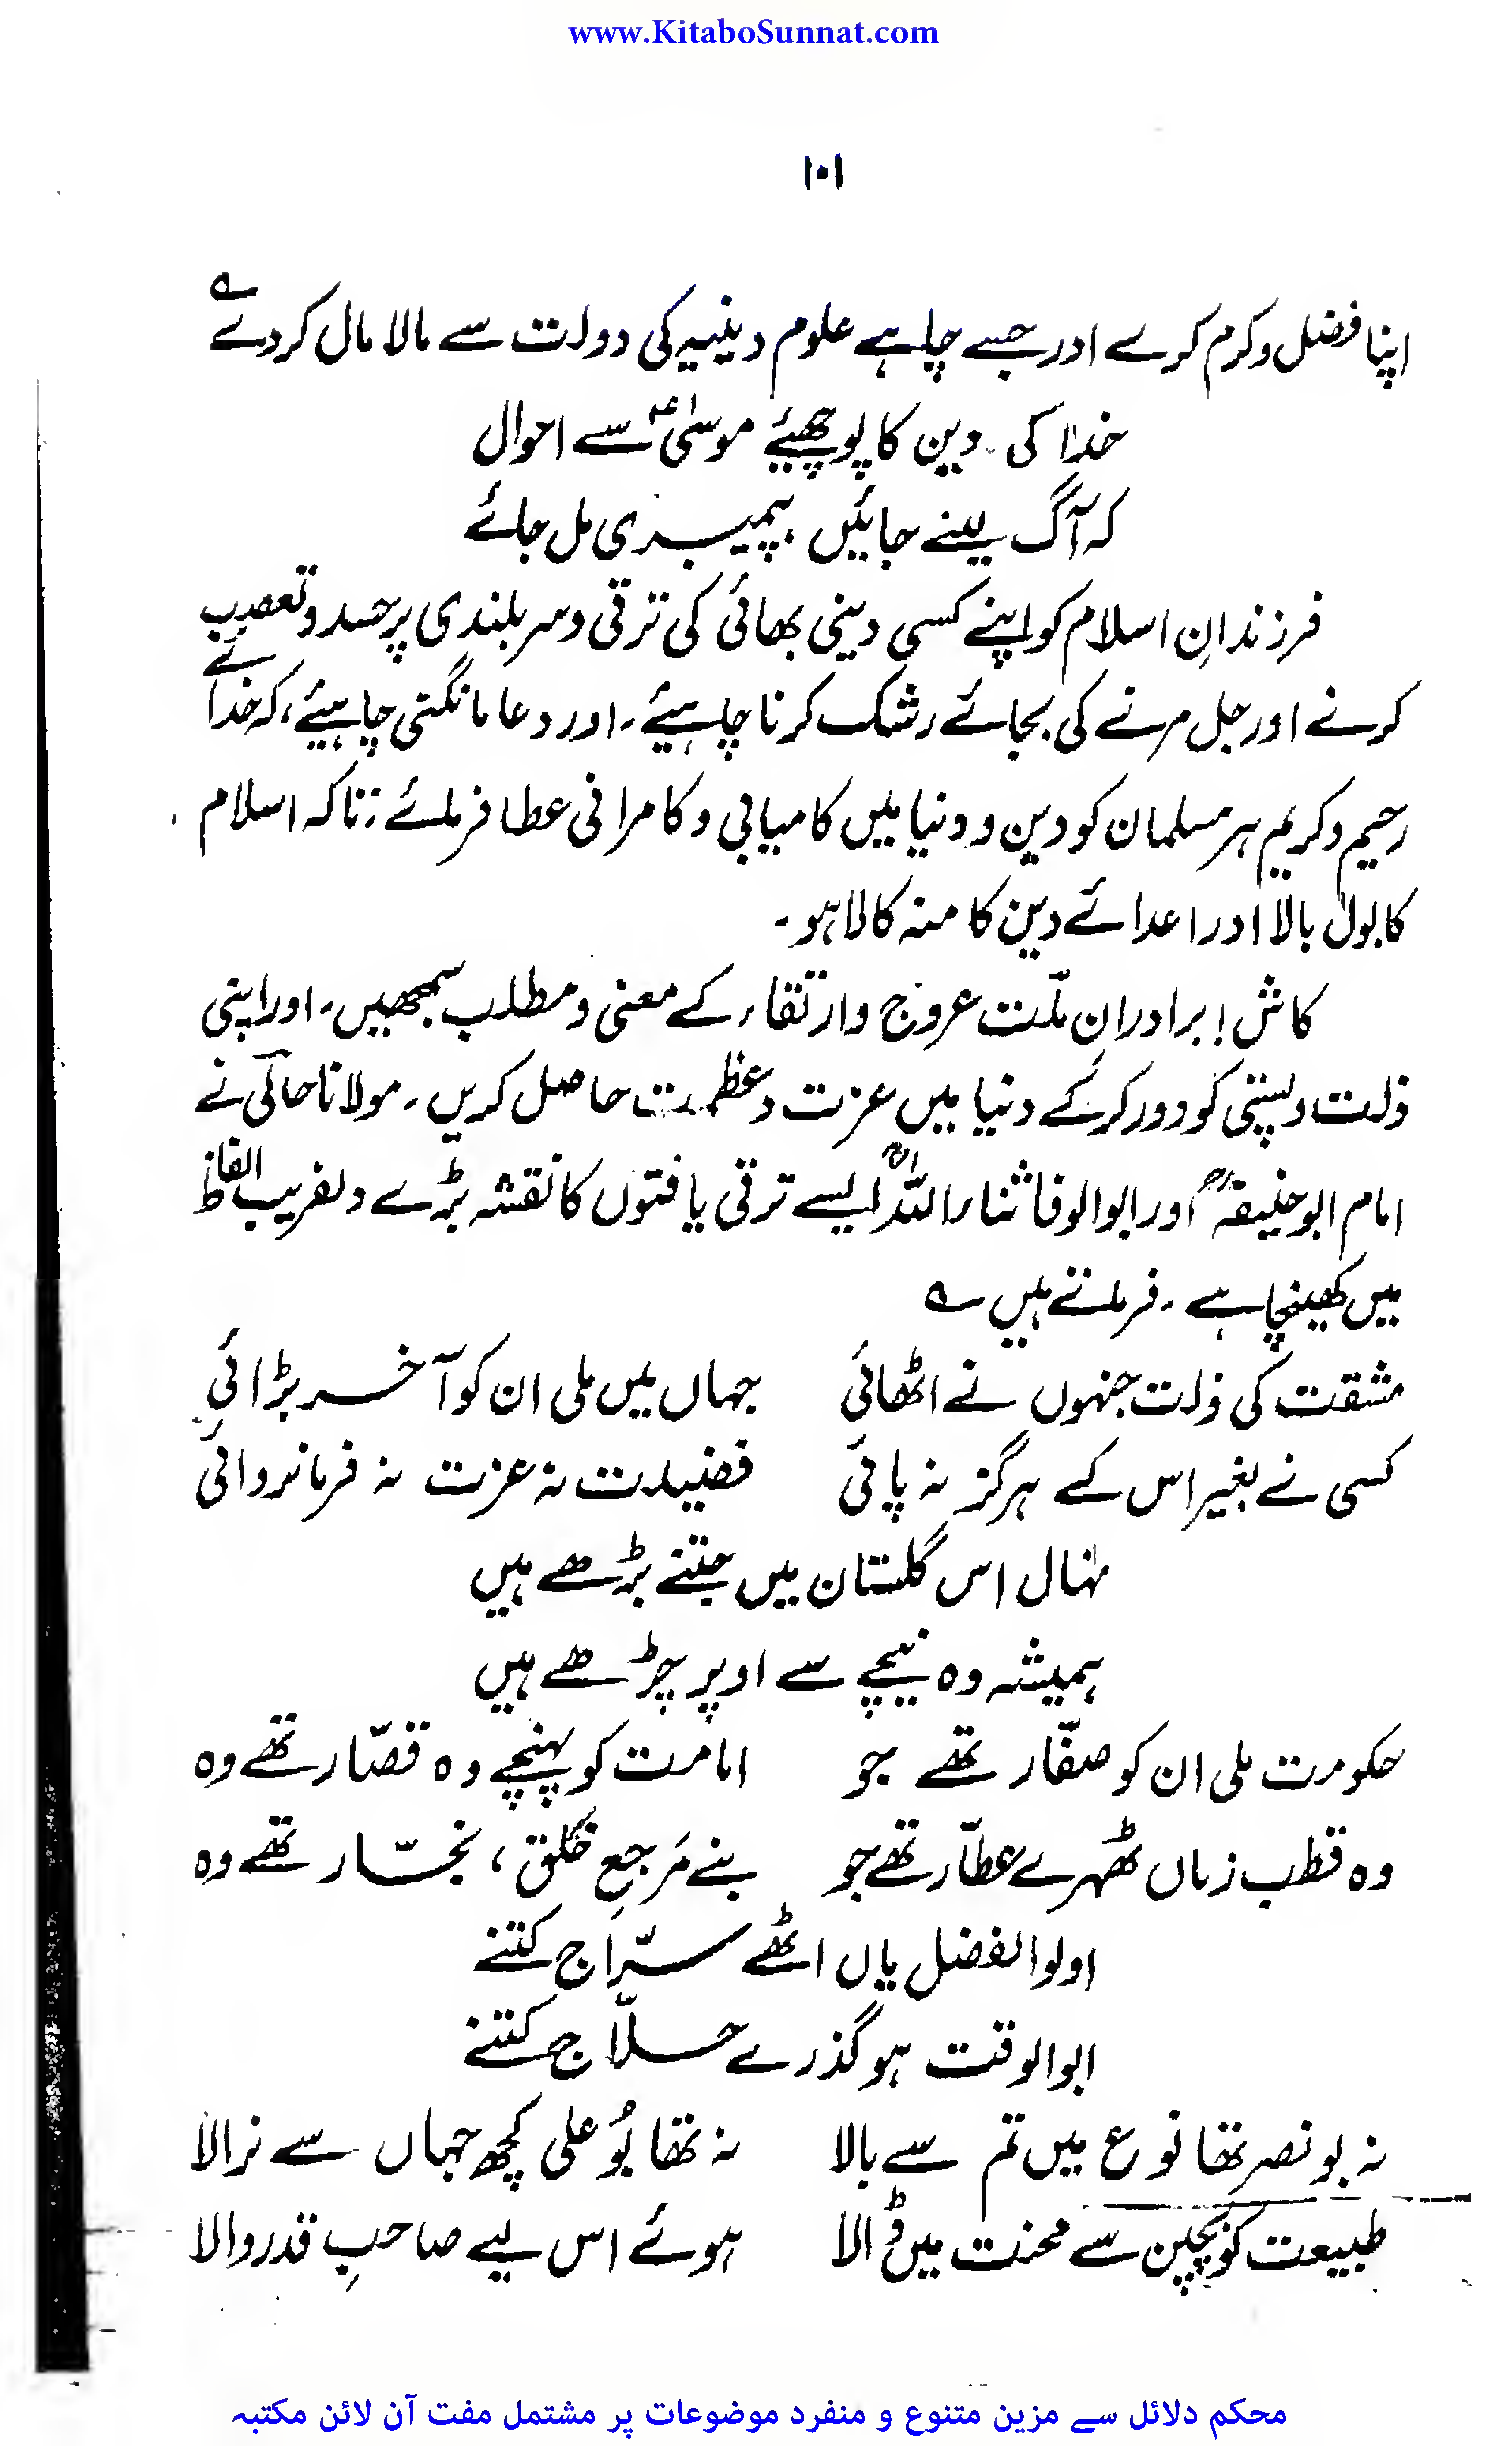 www.KitaboSunnat.com
۱۰۱
اپنا فضل و کرم کرے اور جسے چاہے علوم دینیہ کی دولت سے مالا مال کر دے ؎
خدا کی دین کا پوچھیئے موسیٰؑ سے احوال
کہ آگ لینے جائیں، پیمبری مل جائے
فرزندانِ اسلام کو اپنے کسی دینی بھائی کی ترقی و سربلندی پر حسد و تعصب
کرنے اور جل مرنے کی بجائے رشک کرنا چاہیئے۔ اور دعا مانگنی چاہیئے، کہ خدائے
رحیم و کریم ہر مسلمان کو دین و دنیا میں کامیابی و کامرانی عطا فرمائے؛ تاکہ اسلام
کا بول بالا اور اعدائے دین کا منہ کالا ہو۔
کاش! برادرانِ ملّت عروج و ارتقاء کے معنی و مطلب سمجھیں، اور اپنی
ذلت و پستی کو دور کر کے دنیا میں عزت و عظمت حاصل کریں۔ مولانا حالیؔ نے
امام ابو حنیفہؒ اور ابو الوفا ثناء اللہؒ ایسے ترقی یافتوں کا نقشہ بڑے دلفریب الفاظ
میں کھینچا ہے۔ فرماتے ہیں ؎
مشقت کی ذلت جنہوں نے اٹھائی جہاں میں ملی ان کو آخر بڑائی
کسی نے بغیر اس کے ہرگز نہ پائی فضیلت نہ عزت نہ فرمانروائی
نہال اس گلستان میں جتنے بڑھے ہیں
ہمیشہ وہ نیچے سے اوپر چڑھے ہیں
حکومت ملی ان کو صفّار تھے جو امامت کو پہنچے وہ قصّار تھے وہ
وہ قطب زماں ٹھہرے عطّار تھے جو بنے مَرجعِ خَلق، نجّار تھے وہ
اولوالفضل یاں اٹھے سرّاج کتنے
ابوالوقت ہو گذرے حلّاج کتنے
نہ بونصر تھا نوع میں تم سے بالا نہ تھا بُو علی کچھ جہاں سے نرالا
طبیعت کو بچپن سے محنت میں ڈالا ہوئے اس لیے صاحبِ قدر والا
محکم دلائل سے مزین متنوع و منفرد موضوعات پر مشتمل مفت آن لائن مکتبہ